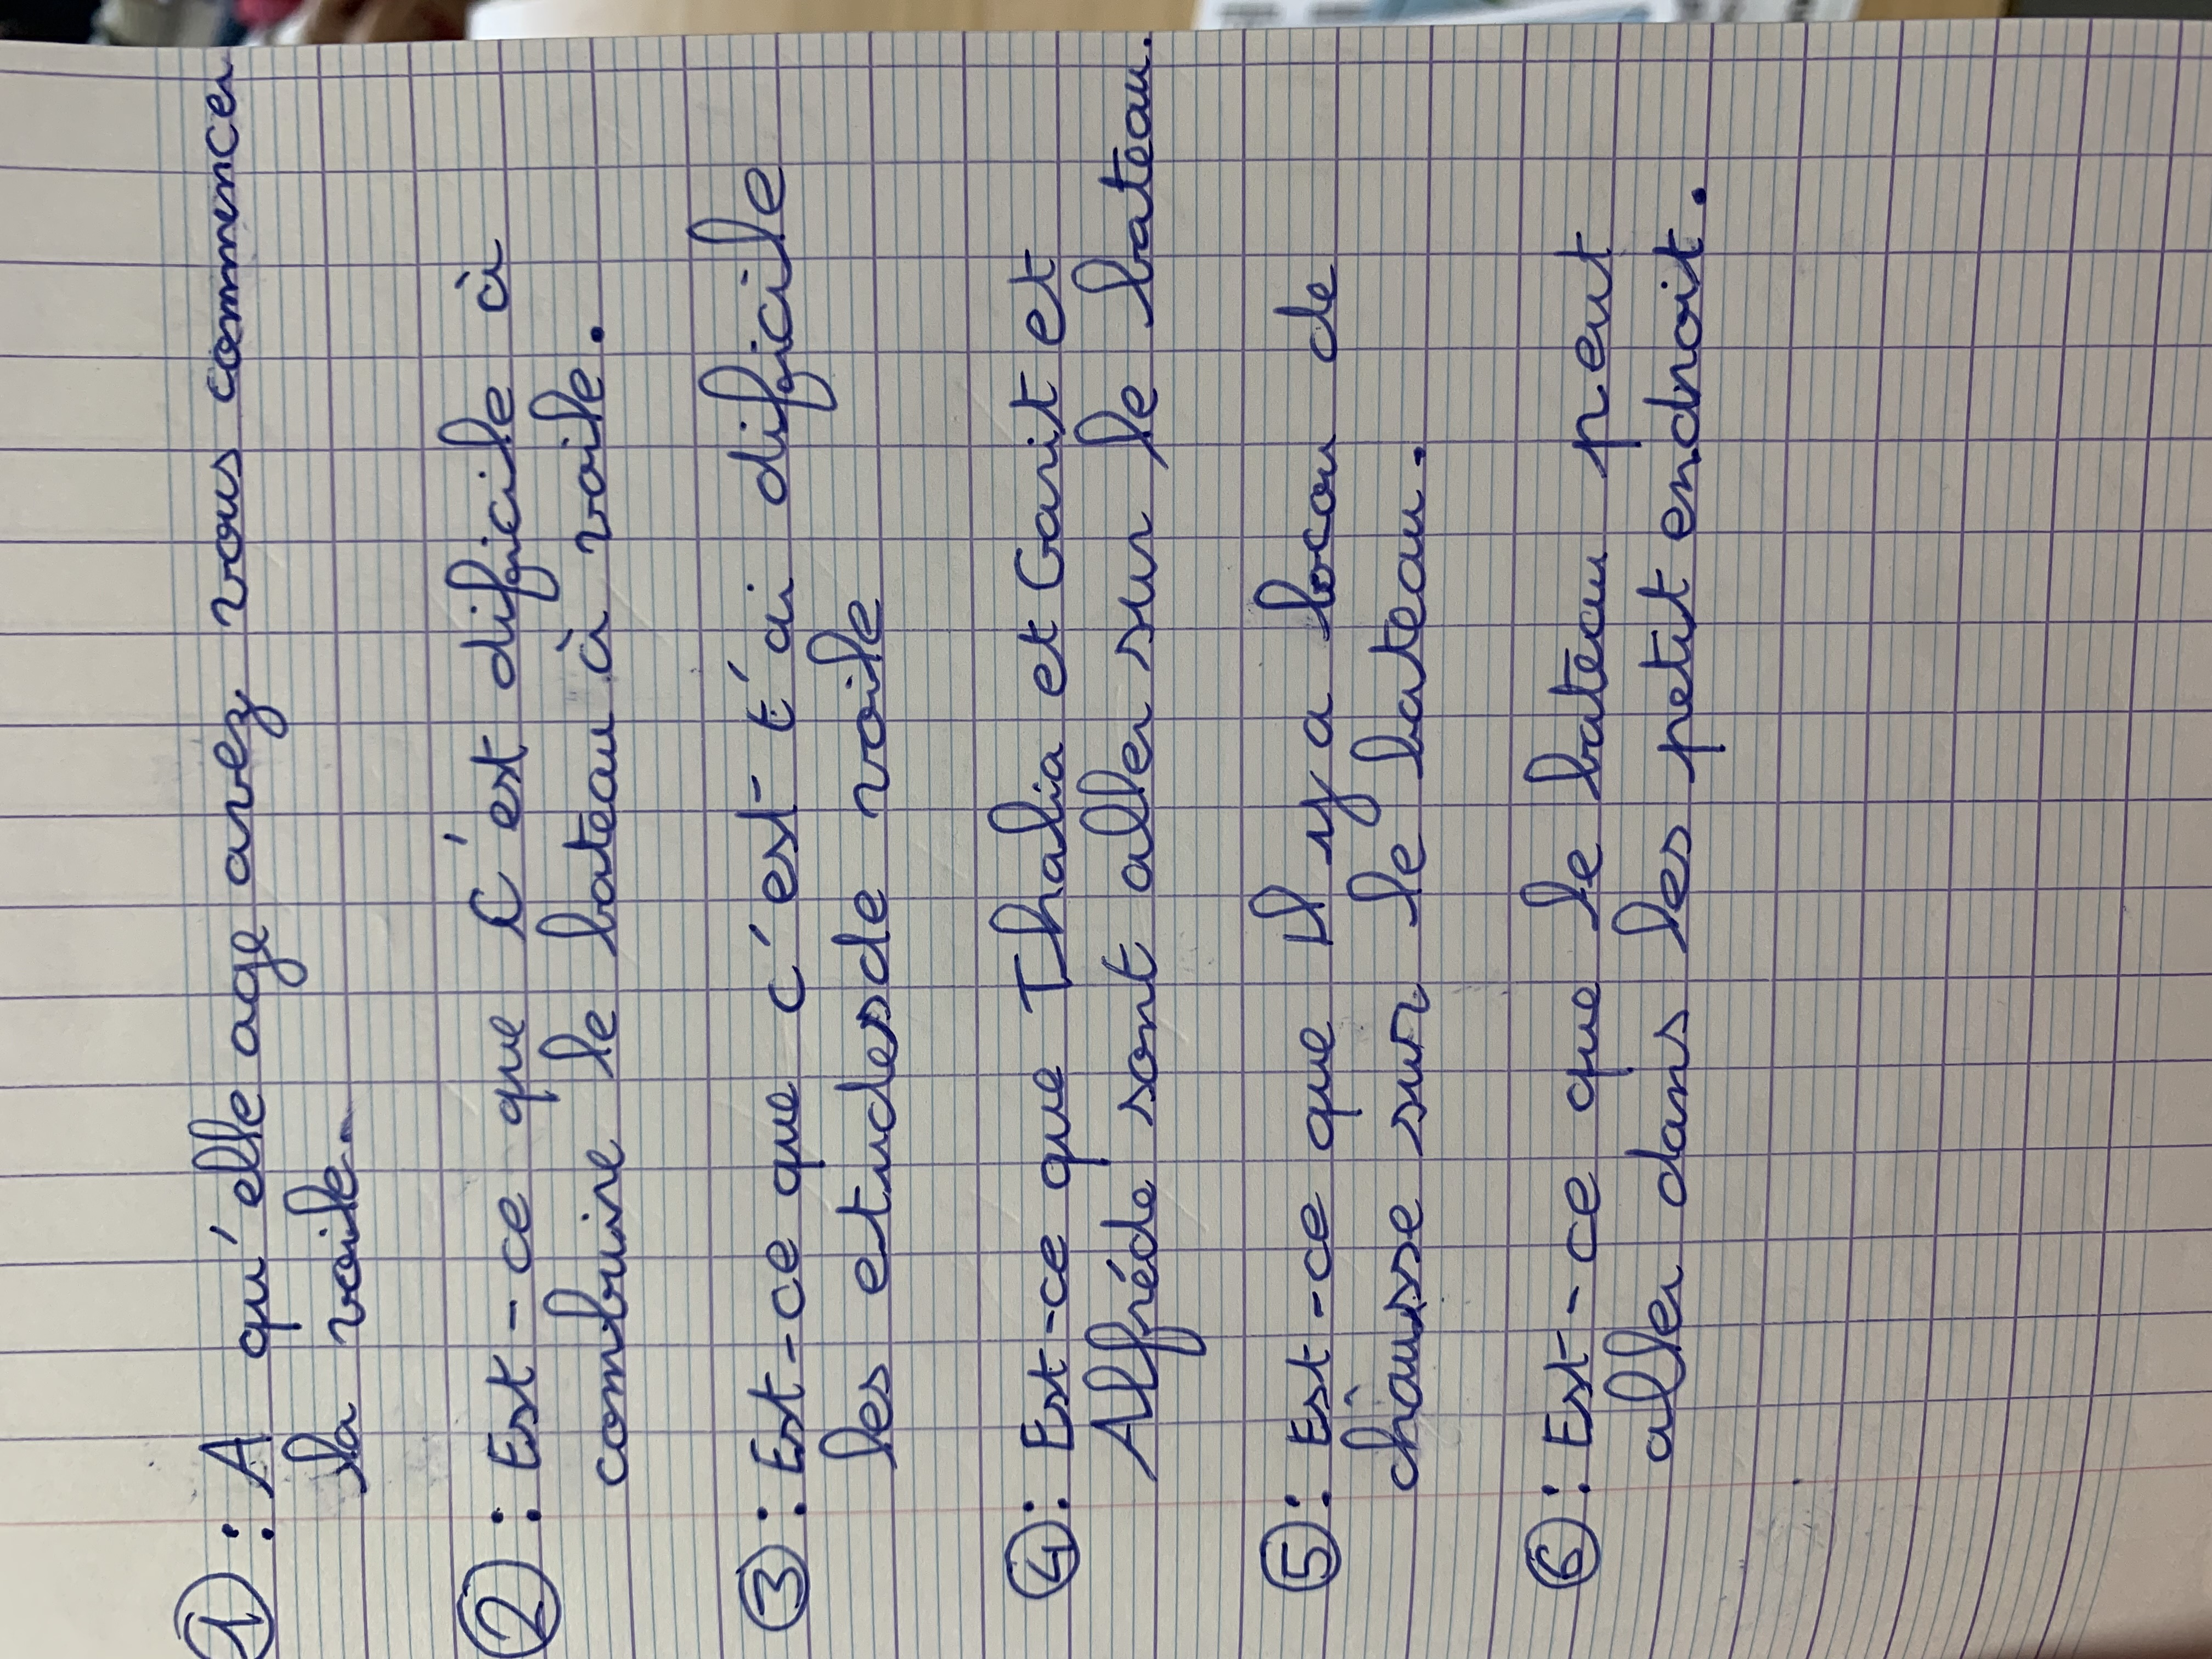 ① : A qu'elle age avez vous commencer
la voile.
② : Est-ce que c'est difficile à
combuire le bateau à voile.
③ : Est-ce que c'est t'ai difficile
les etudes de voile
④ : Est-ce que Thalia et Garit et
Alfréde sont aller sur le bateau.
⑤ : Est-ce que Il y a bocou de
chausse sur le bateau.
⑥ : Est-ce que le bateau peut
aller dans les petit endroit.